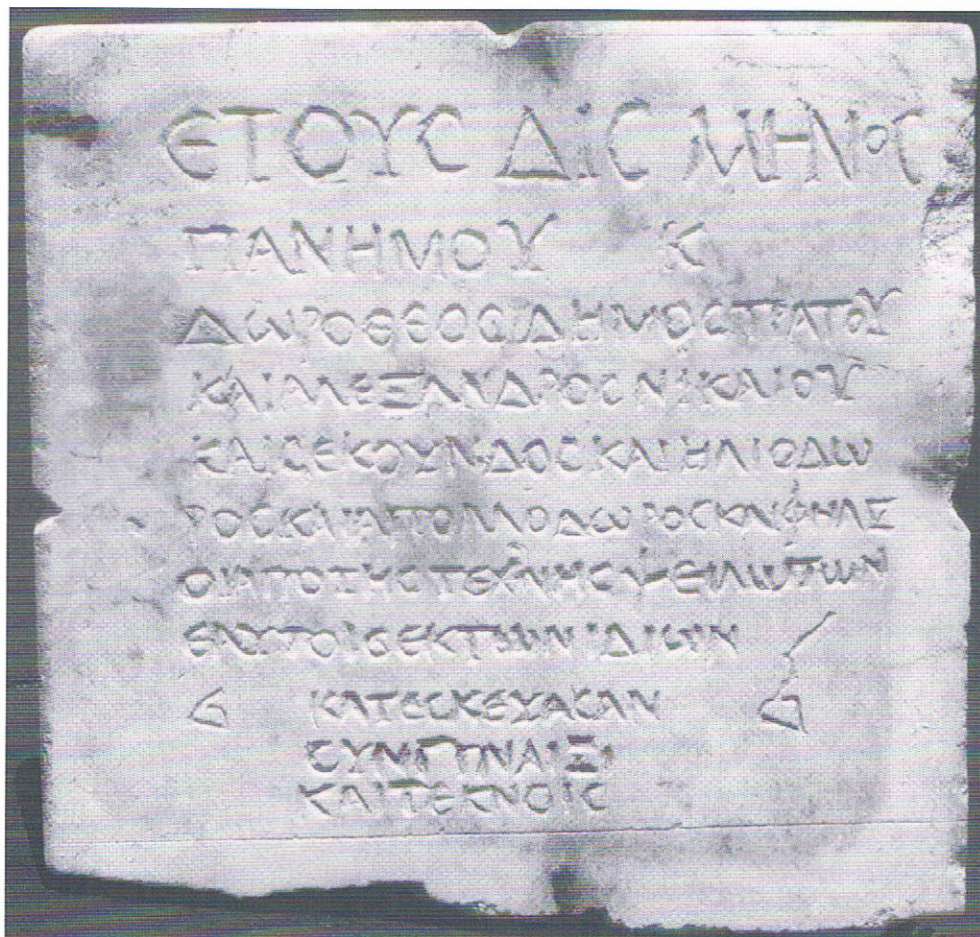 ΕΤΟΥϹ ΔΙϹ ΜΗΝΟϹ
ΠΑΝΗΜΟΥ Κ
ΔΩΡΟΘΕΟϹ ΔΗΜΟϹΤΡΑΤΟΥ
ΚΑΙ ΑΛΕΞΑΝΔΡΟϹ ΝΙΚΑΙΟΥ
ΚΑΙ ϹΕΚΟΥΝΔΟϹ ΚΑΙ ΗΛΙΟΔΩ
ΡΟϹ ΚΑΙ ΑΠΟΛΛΟΔΩΡΟϹ ΚΑΙ ΦΗΛΙΞ
ΟΙ ΑΠΟ ΤΗϹ ΤΕΧΝΗϹ ΨΕΙΛΩΤΩΝ
ΕΑΥΤΟΙϹ ΕΚ ΤΩΝ ΙΔΙΩΝ
ΚΑΤΕϹΚΕΥΑϹΑΝ
ϹΥΝ ΓΥΝΑΙΞΙ
ΚΑΙ ΤΕΚΝΟΙϹ